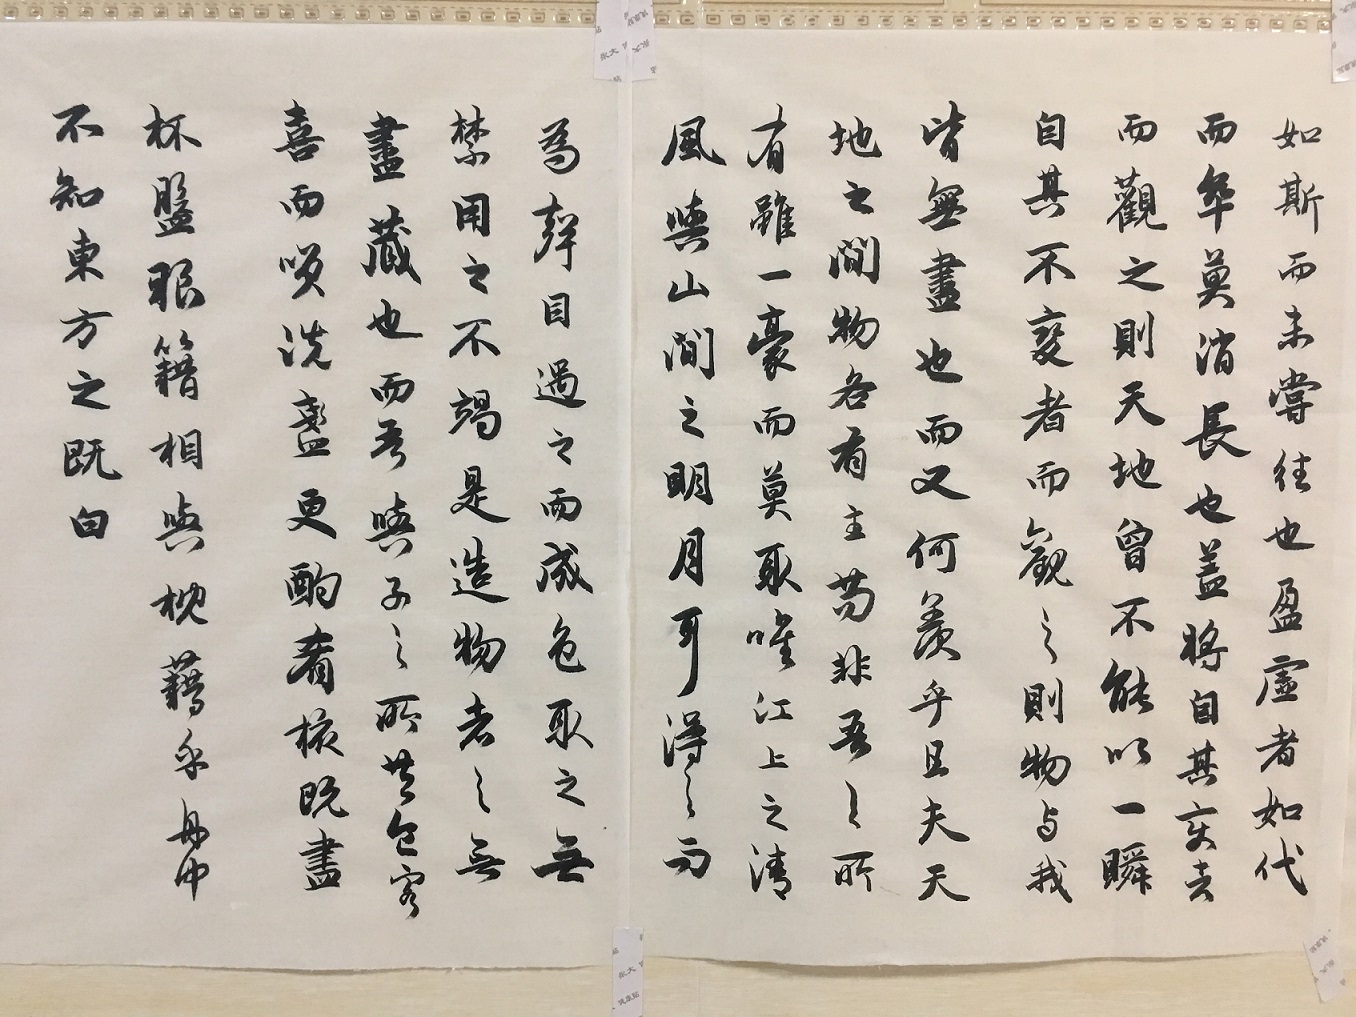 如斯而未嘗往也盈虛者如代
而卒莫消長也蓋將自其変者
而觀之則天地曾不能以一瞬
自其不変者而觀之則物与我
皆無盡也而又何羨乎且夫天
地之間物各有主苟非吾之所
有雖一豪而莫取唯江上之清
風與山間之明月耳得之而
為聲目遇之而成色取之無
禁用之不竭是造物者之無
盡藏也而吾與子之所共食客
喜而笑洗盞更酌肴核既盡
杯盤狼籍相與枕藉乎舟中
不知東方之既白